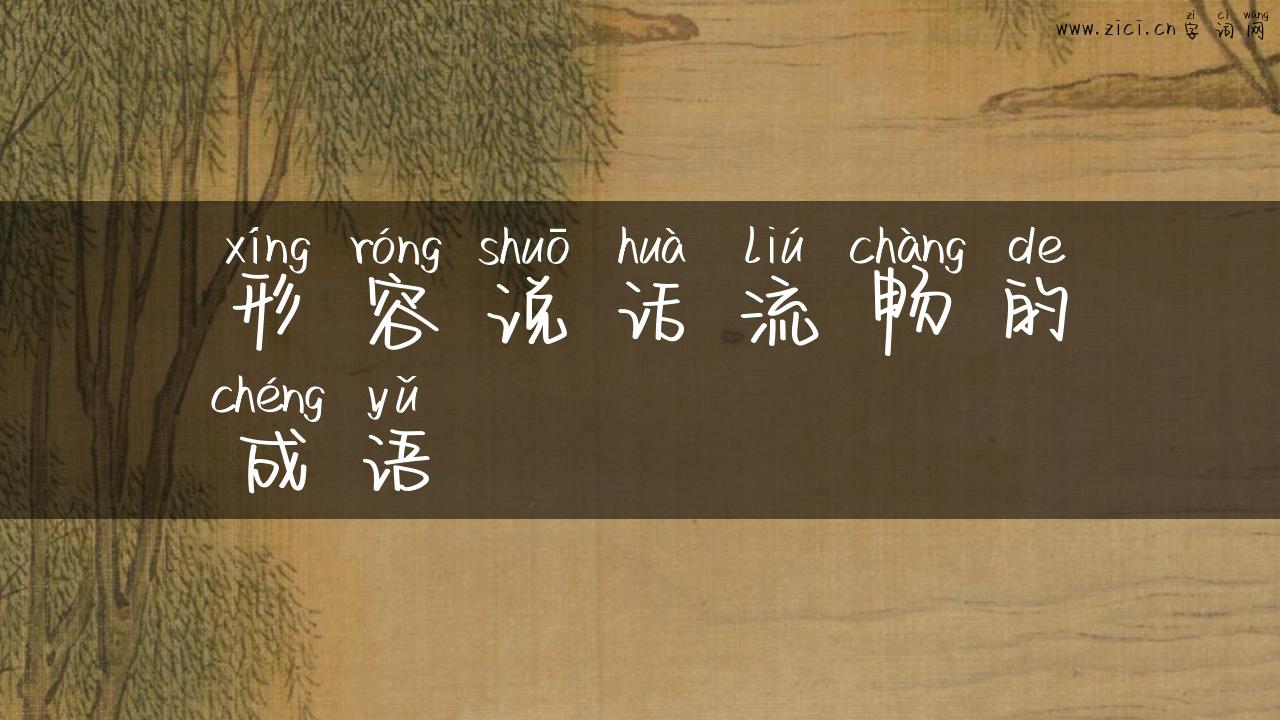 zì cí wǎng
www.zici.cn 字词网
xíng róng shuō huà liú chàng de
形容说话流畅的
chéng yǔ
成语